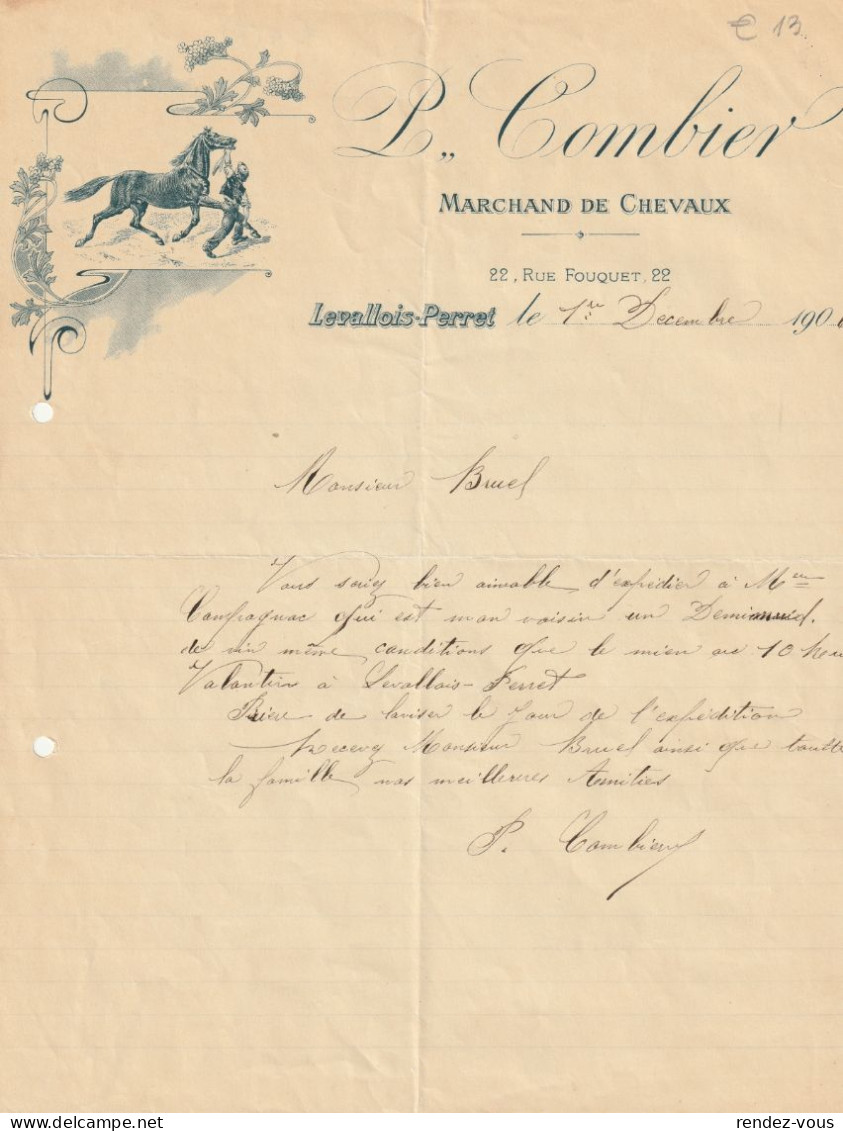 € 13.
P,, Combier
MARCHAND DE CHEVAUX
22, RUE FOUQUET, 22
Levallois-Perret le 1re Decembre 190
Monsieur Bruel
Vous serez bien aimable d'expedier à
Campagnac qui est mon voisin un Demi muid.
de vin même conditions que le mien au 10
Valantin à Levallois-Perret
Prière de laviser le jour de l'expédition
Recevez Monsieur Bruel ainsi que toutte
la famille nos meilleures Amities
P. Combier
rendez-vous